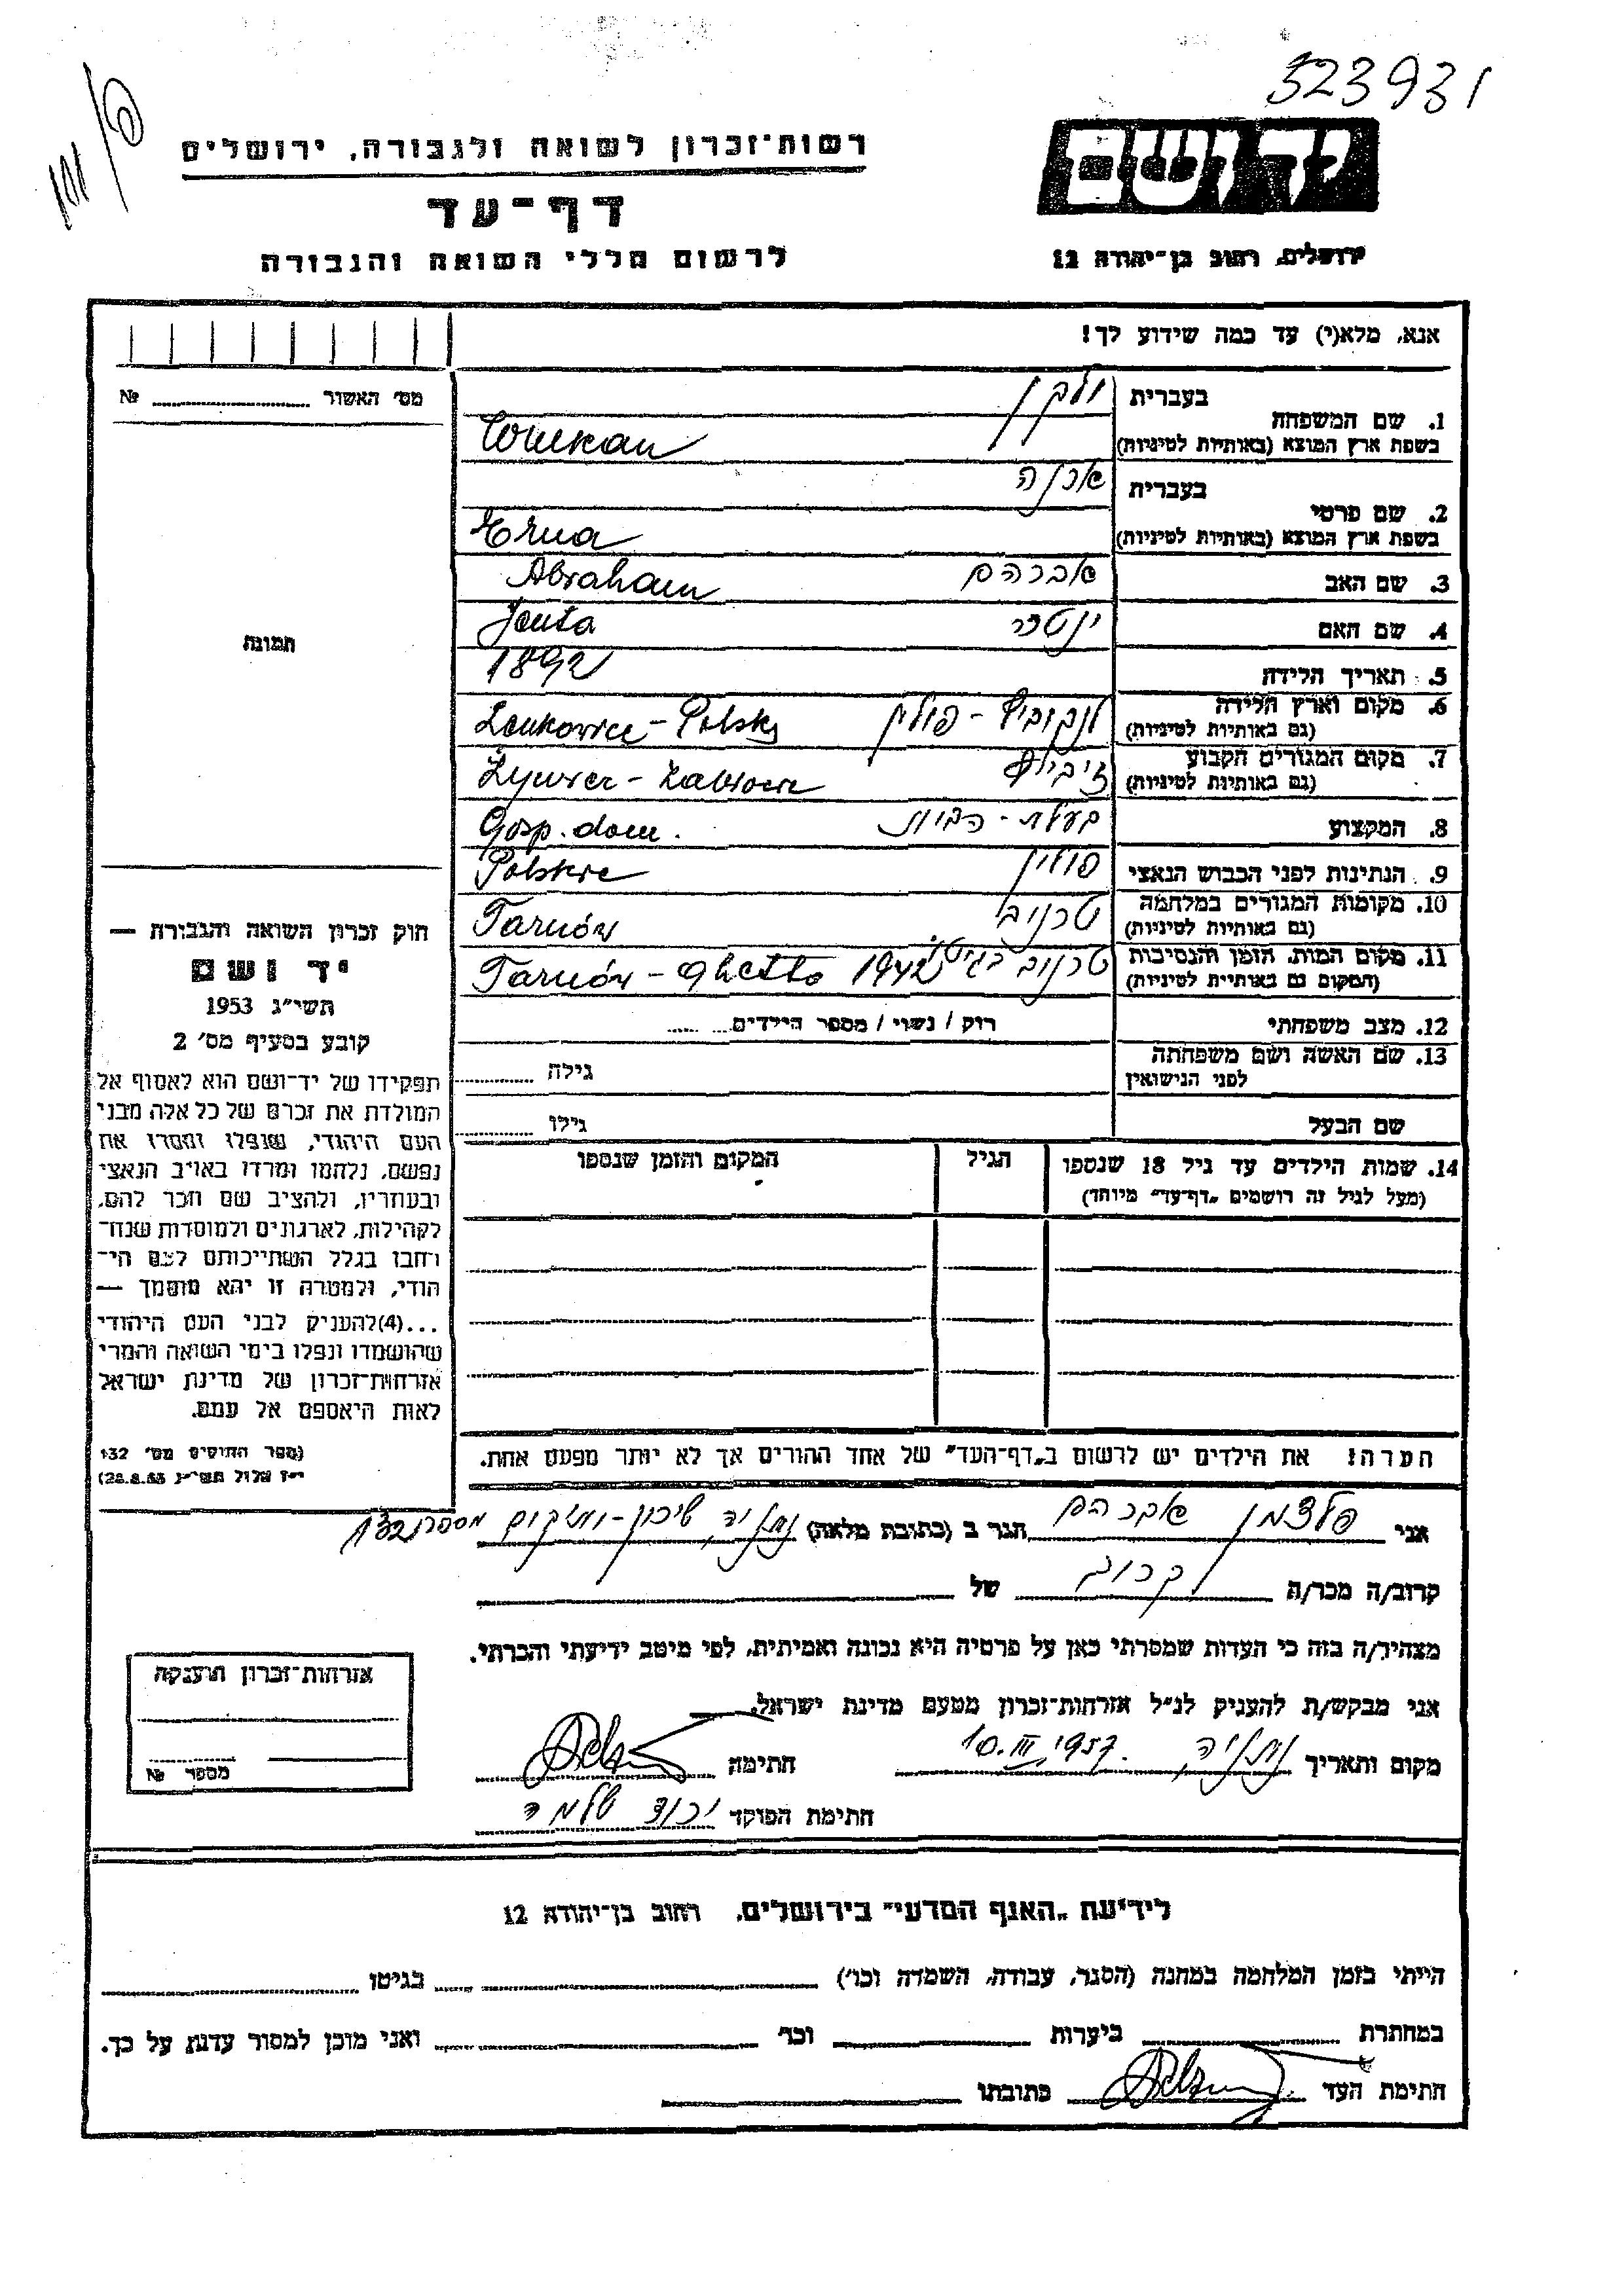 523931
רשות־זכרון לשואה ולגבורה, ירושלים
יד ושם
דף־עד
לרשום חללי השואה והגבורה
ירושלים, רחוב בן־יהודה 12
אנא, מלא(י) עד כמה שידוע לך!
מס׳ האשור № ........
1. שם המשפחה בעברית
בשפת ארץ המוצא (באותיות לטיניות)
2. שם פרטי בעברית ארנה
בשפת ארץ המוצא (באותיות לטיניות) Erna
3. שם האב אברהם Abraham
4. שם האם Jenta
5. תאריך הלידה 1892
6. מקום וארץ הלידה
(גם באותיות לטיניות) פולין
7. מקום המגורים הקבוע
(גם באותיות לטיניות) Żywiec - Zabłocie
8. המקצוע בעלת-הבית Gosp. dom.
9. הנתינות לפני הכבוש הנאצי פולין Polskie
10. מקומות המגורים במלחמה
(גם באותיות לטיניות) טרנוב Tarnów
11. מקום המות, הזמן והנסיבות
(המקום גם באותיות לטיניות) טרנוב בגיטו Tarnów - Ghetto 1942
12. מצב משפחתי רוק / נשוי / מספר הילדים........
13. שם האשה ושם משפחתה
לפני הנישואין גילה ........
שם הבעל גילו ........
14. שמות הילדים עד גיל 18 שנספו הגיל המקום והזמן שנספו
(מעל לגיל זה רושמים „דף־עד״ מיוחד)
הערה! את הילדים יש לרשום ב„דף־העד״ של אחד ההורים אך לא יותר מפעם אחת.
תמונה
חוק זכרון השואה והגבורה —
יד ושם
תשי״ג 1953
קובע בסעיף מס׳ 2
תפקידו של יד־ושם הוא לאסוף אל
המולדת את זכרם של כל אלה מבני
העם היהודי, שנפלו ומסרו את
נפשם, נלחמו ומרדו באויב הנאצי
ובעוזריו, ולהציב שם וזכר להם,
לקהילות, לארגונים ולמוסדות שנח־
רבו בגלל השתייכותם לעם הי־
הודי, ולמטרה זו יהא מוסמך —
...(4)להעניק לבני העם היהודי
שהושמדו ונפלו בימי השואה והמרי
אזרחות־זכרון של מדינת ישראל
לאות היאספם אל עמם.
(ספר החוקים מס׳ 132
י״ז אלול תשי״ג 28.8.53)
אני פלצמן אברהם הגר ב (כתובת מלאה) נתניה, שיכון-ותיקים מספר
קרוב/ה מכר/ה קרוב של
מצהיר/ה בזה כי העדות שמסרתי כאן על פרטיה היא נכונה ואמיתית, לפי מיטב ידיעתי והכרתי.
אני מבקש/ת להעניק לנ״ל אזרחות־זכרון מטעם מדינת ישראל.
מקום ותאריך נתניה, 10.III.1957 חתימה
חתימת הפוקד
אזרחות־זכרון הוענקה
מספר №
לידיעת „האגף המדעי״ בירושלים, רחוב בן־יהודה 12
הייתי בזמן המלחמה במחנה (הסגר, עבודה, השמדה וכו׳) בגיטו
במחתרת ביערות וכו׳ ואני מוכן למסור עדות על כך.
חתימת העד כתובתו